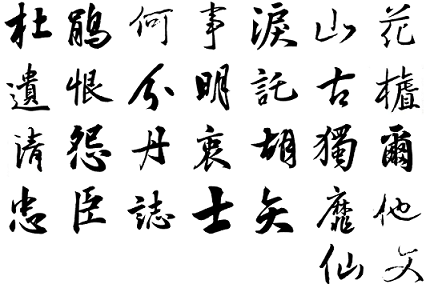 杜鵑何事淚山花
遺恨分明託古樝
清怨丹衷胡獨爾
忠臣誌士矢靡他
仙文